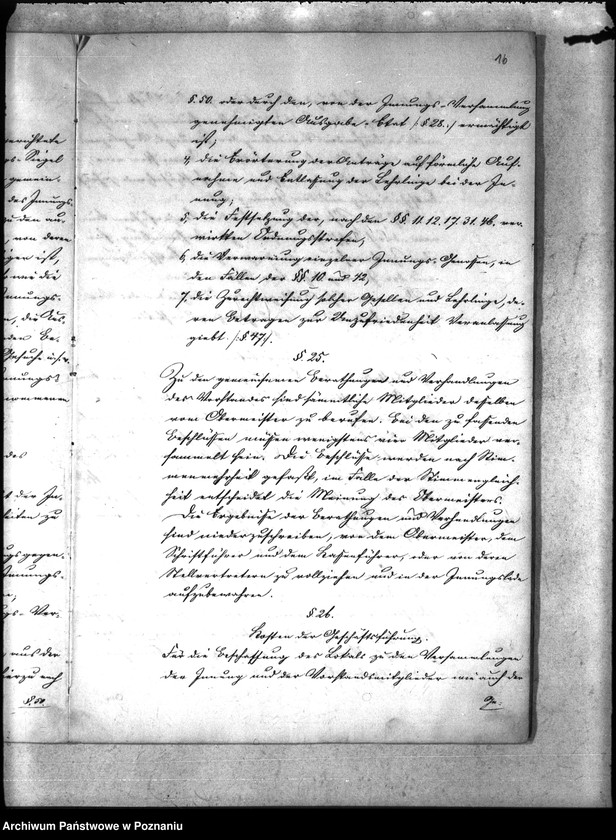 16
§. 50. oder durch den, von der Innungs-Versammlung
genehmigten Ausgabe-Etat /:§ 28.:/ ermächtigt
ist;
4, die Erörterung der Anträge auf förmliche Auf-
nahme und Entlassung der Lehrlinge bei der In-
nung;
5, die Festsetzung der, nach den §§. 11. 12. 17. 31. 46. ver-
wirkten Ordnungsstrafen;
6, die Verwarnung einzelner Innungs-Genossen, in
den Fällen der §§. 10 und 42,
7, die Zurechtweisung solcher Gesellen und Lehrlinge, de-
ren Betragen zur Unzufriedenheit Veranlassung
giebt. /:§ 47:/.
§ 25.
Zu den gemeinsamen Berathungen und Verhandlungen
des Vorstandes sind sämmtliche Mitglieder desselben
vom Obermeister zu berufen. Bei den zu fassenden
Beschlüssen müssen wenigstens vier Mitglieder ver-
sammelt sein. Die Beschlüsse werden nach Stim-
menmehrheit gefaßt, im Falle der Stimmengleich-
heit entscheidet die Meinung des Obermeisters.
Die Ergebnisse der Berathungen und Verhandlungen
sind niederzuschreiben, von dem Obermeister, dem
Schriftführer und dem Kassenführer, oder von deren
Stellvertretern zu vollziehen und in der Innungslade
aufzubewahren.
§ 26.
Kosten der Geschäftsführung.
Für die Beschaffung des Lokals zu den Versammlungen
der Innung und der Vorstandsmitglieder wie auch der
Ge-
errichtete
Siegel
gemein-
des Innungs-
zu den au-
von deren
gen ist,
die
Innungs-
den Be-
des
der In-
zu
Innungs-
Ver-
aus der
hierzu auch
§. 50
Archiwum Państwowe w Poznaniu